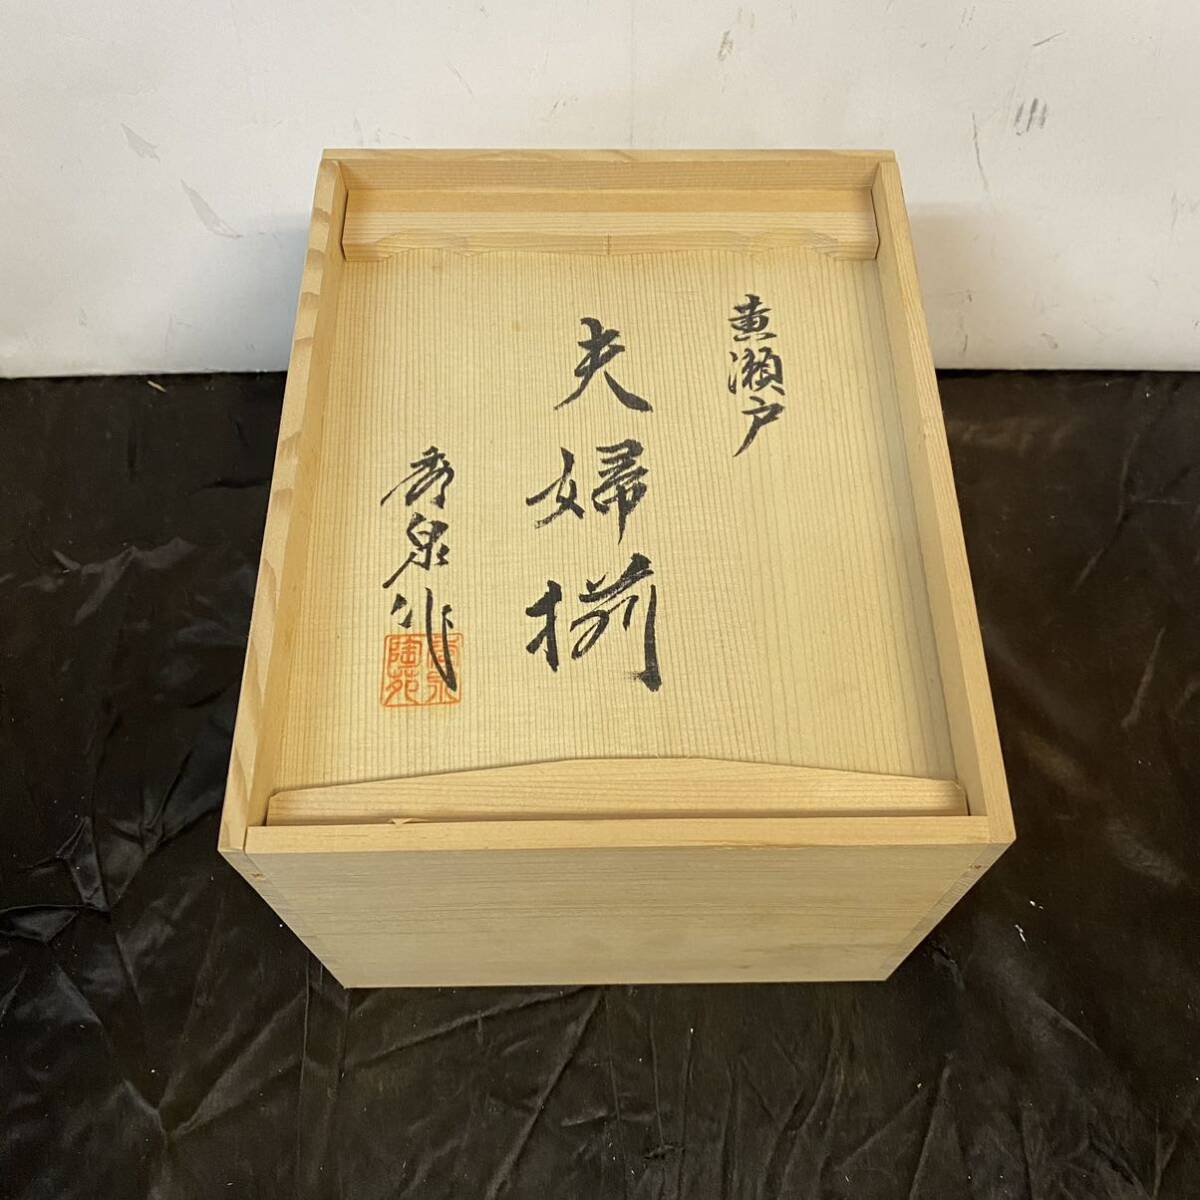 黄瀬戸
夫婦揃
秀泉作
秀泉
陶苑